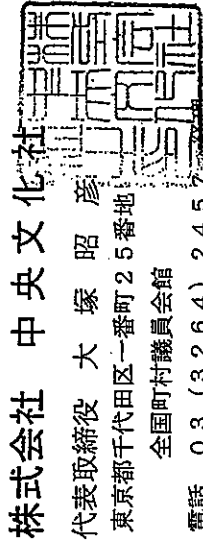 株式会社 中央文化社
代表取締役 大塚昭彦
東京都千代田区一番町25番地
全国町村議員会館
電話 03(3264)2457